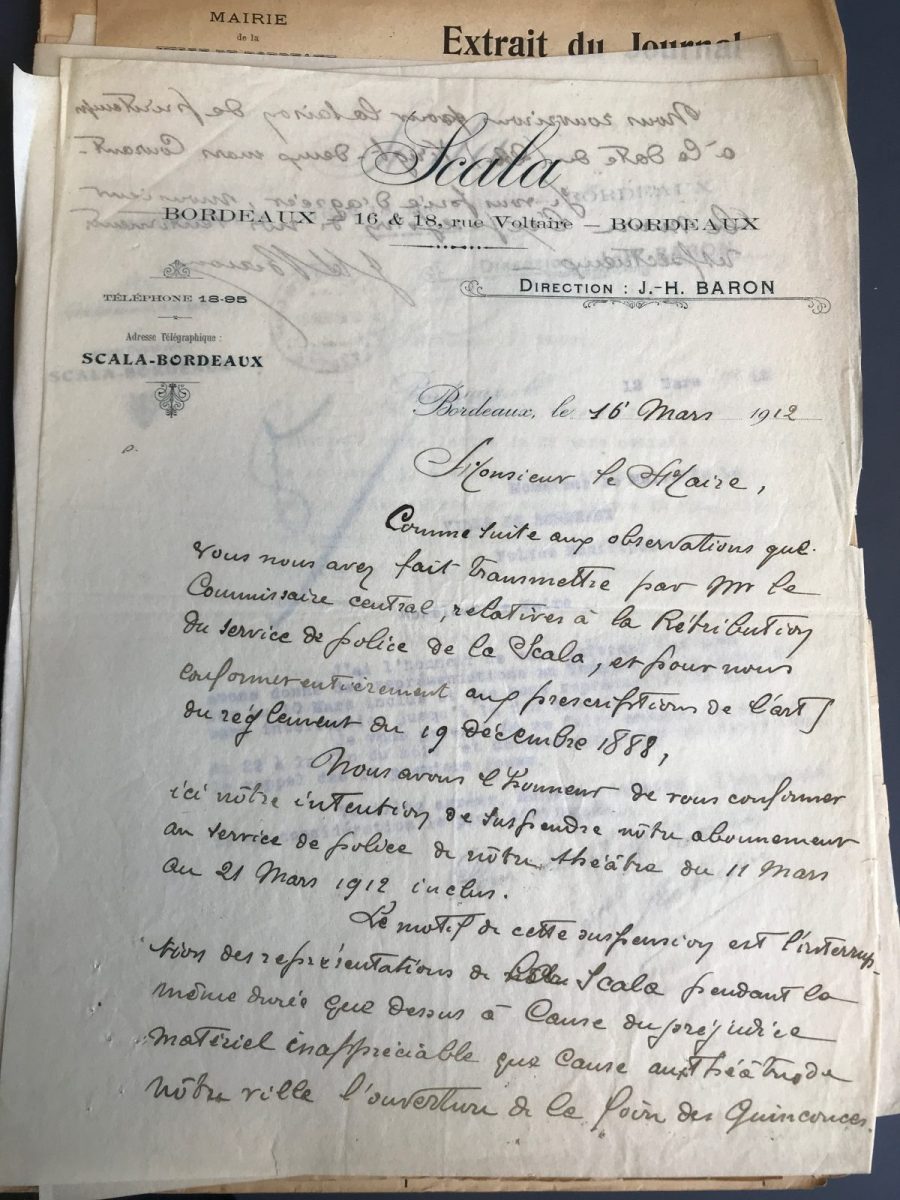 MAIRIE
de la
Extrait du Journal
Scala
BORDEAUX — 16 & 18, rue Voltaire — BORDEAUX
DIRECTION : J.-H. BARON
TÉLÉPHONE 18-95
Adresse Télégraphique :
SCALA-BORDEAUX
Bordeaux, le 16 Mars 1912
Monsieur le Maire,
Comme suite aux observations que
vous nous avez fait transmettre par Mr le
Commissaire central, relatives à la Rétribution
du service de police de la Scala, et pour nous
conformer entièrement aux prescriptions de l'art
du réglement du 19 décembre 1888,
Nous avons l'honneur de vous confirmer
ici nôtre intention de suspendre nôtre abonnement
au service de police de nôtre théâtre du 11 Mars
au 21 Mars 1912 inclus.
Le motif de cette suspension est l'interrup-
tion des représentations de la Scala pendant la
même durée que dessus à cause du préjudice
matériel inappréciable que cause aux théâtres de
nôtre ville l'ouverture de la foire des Quinconces.